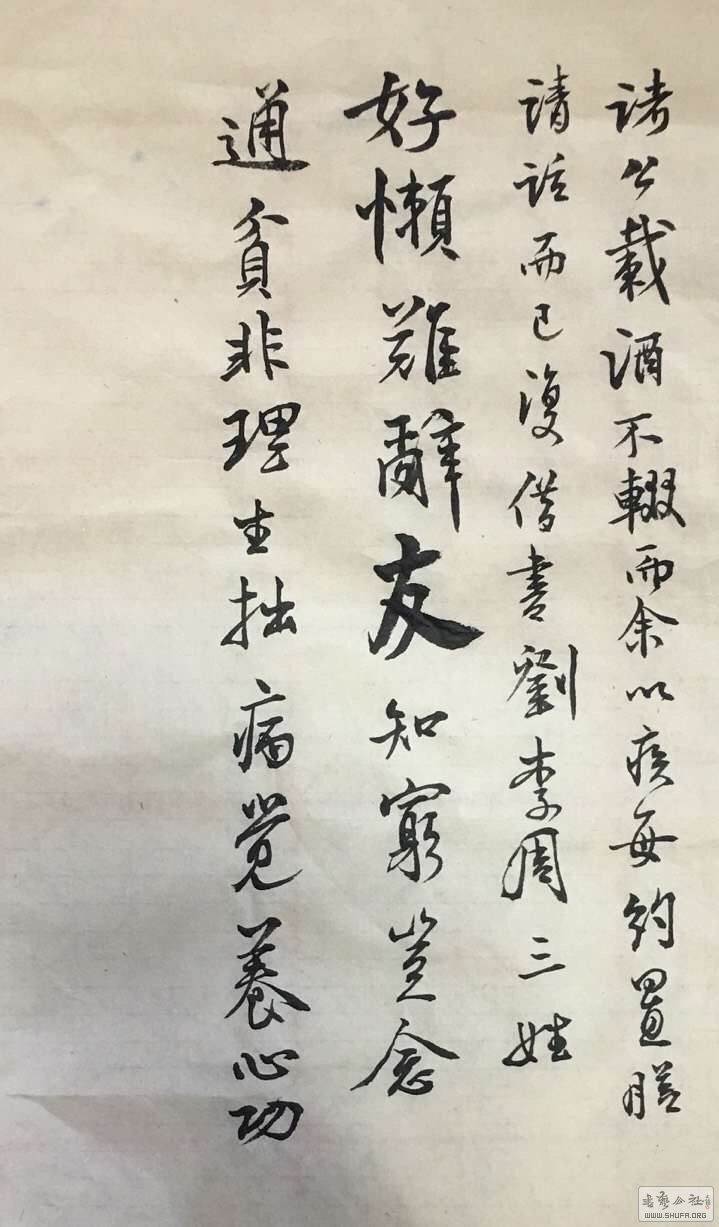 诸公载酒不辍而余以疾每约置膳
请话而已复借书劉李周三姓
好懶难辞友知窮豈念
通貧非理生拙病觉養心功
書艺公社
WWW.SHUFA.ORG